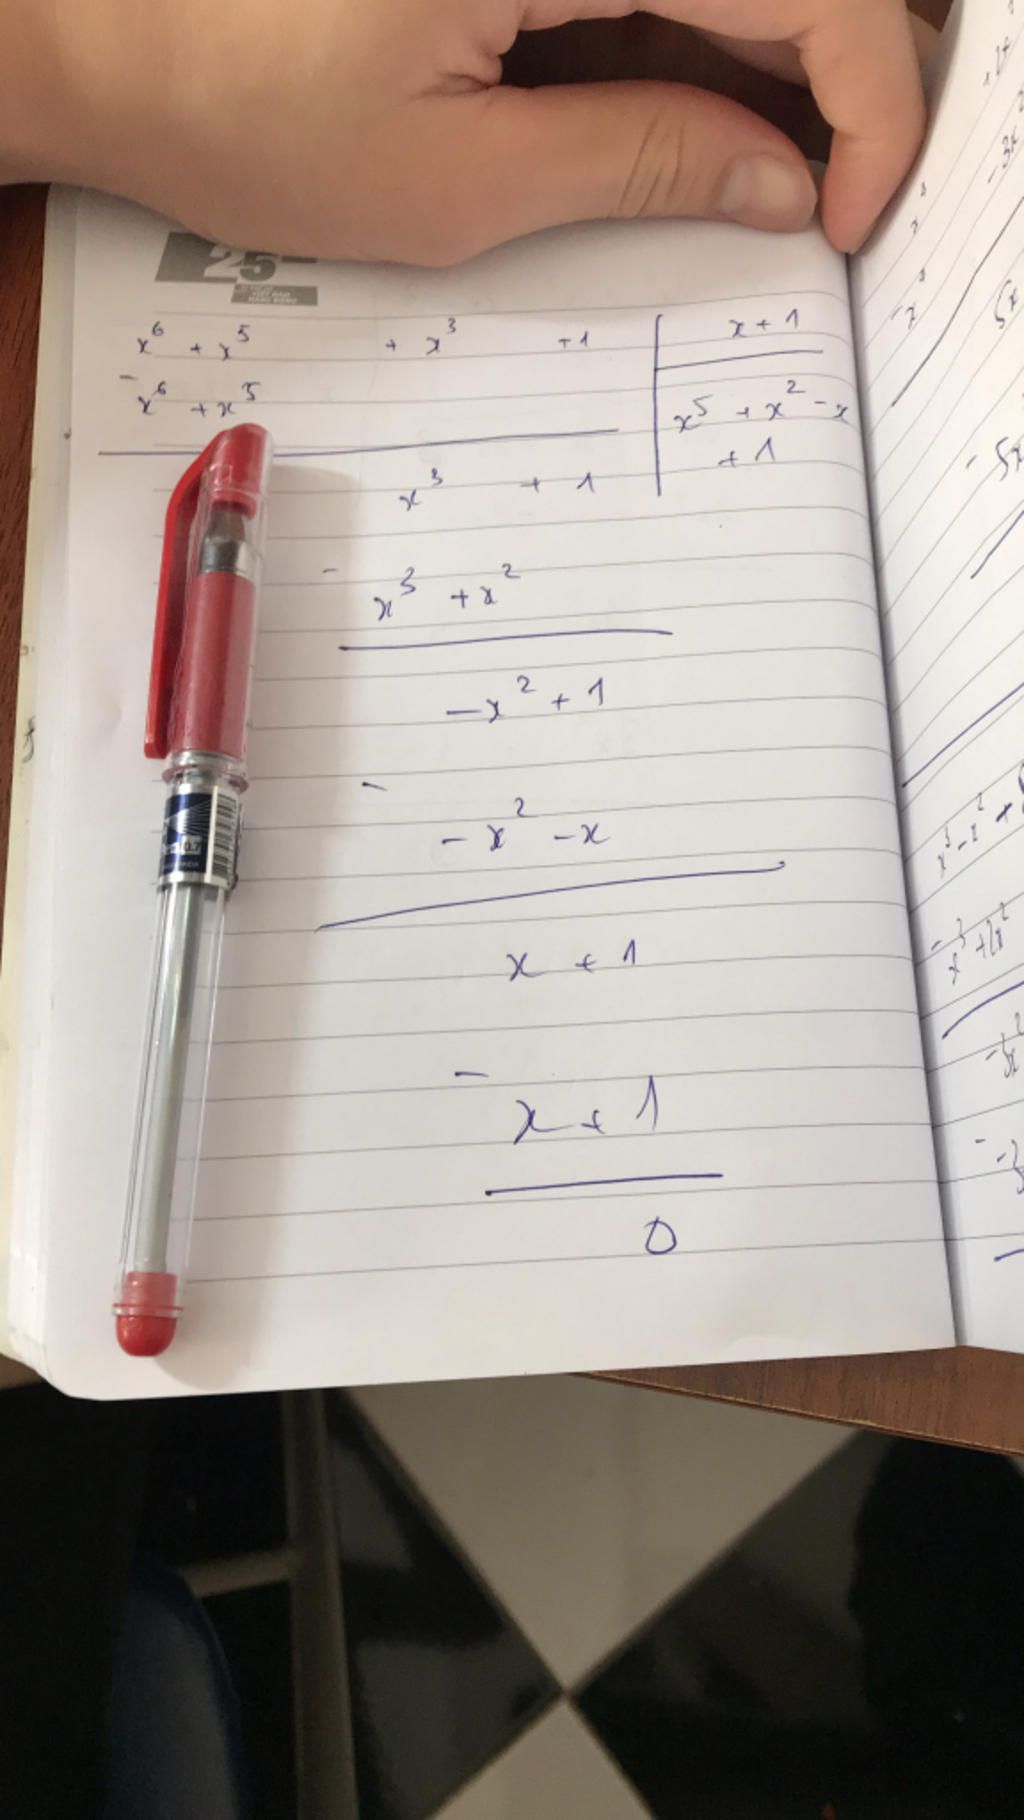 25
x⁶ + x⁵ + x³ + 1 | x + 1
- x⁶ + x⁵ | x⁵ + x² - x
+ 1
x³ + 1
- x³ + x²
-x² + 1
- -x² - x
x + 1
- x + 1
0
x³ - x² +
- x³ + 2x²